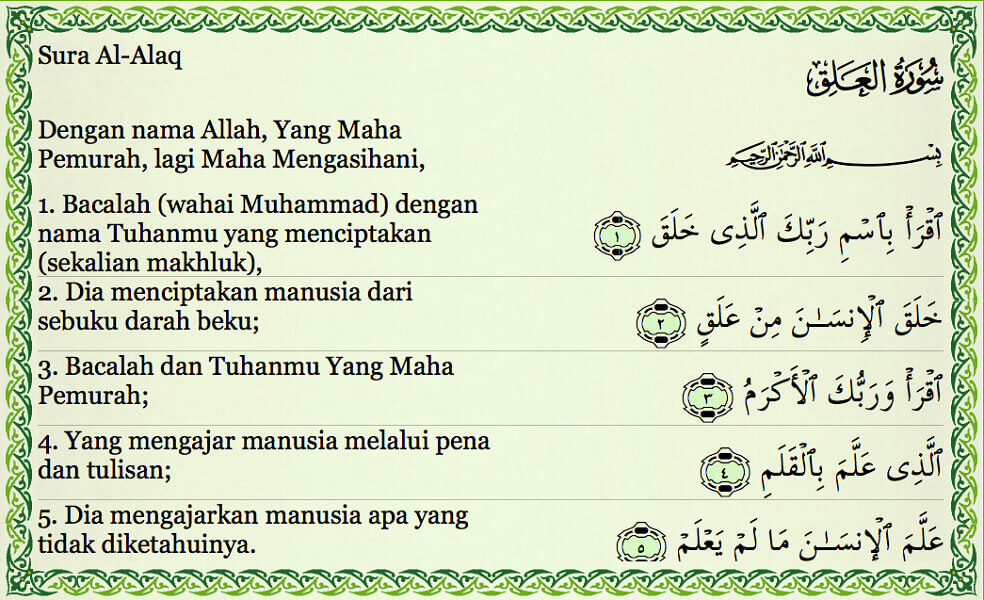 Sura Al-Alaq
سُورَةُ العَلَقِ
Dengan nama Allah, Yang Maha
Pemurah, lagi Maha Mengasihani,
بِسْمِ اللَّهِ الرَّحْمَٰنِ الرَّحِيمِ
1. Bacalah (wahai Muhammad) dengan
nama Tuhanmu yang menciptakan
(sekalian makhluk),
ٱقْرَأْ بِٱسْمِ رَبِّكَ ٱلَّذِى خَلَقَ ١
2. Dia menciptakan manusia dari
sebuku darah beku;
خَلَقَ ٱلْإِنسَـٰنَ مِنْ عَلَقٍ ٢
3. Bacalah dan Tuhanmu Yang Maha
Pemurah;
ٱقْرَأْ وَرَبُّكَ ٱلْأَكْرَمُ ٣
4. Yang mengajar manusia melalui pena
dan tulisan;
ٱلَّذِى عَلَّمَ بِٱلْقَلَمِ ٤
5. Dia mengajarkan manusia apa yang
tidak diketahuinya.
عَلَّمَ ٱلْإِنسَـٰنَ مَا لَمْ يَعْلَمْ ٥